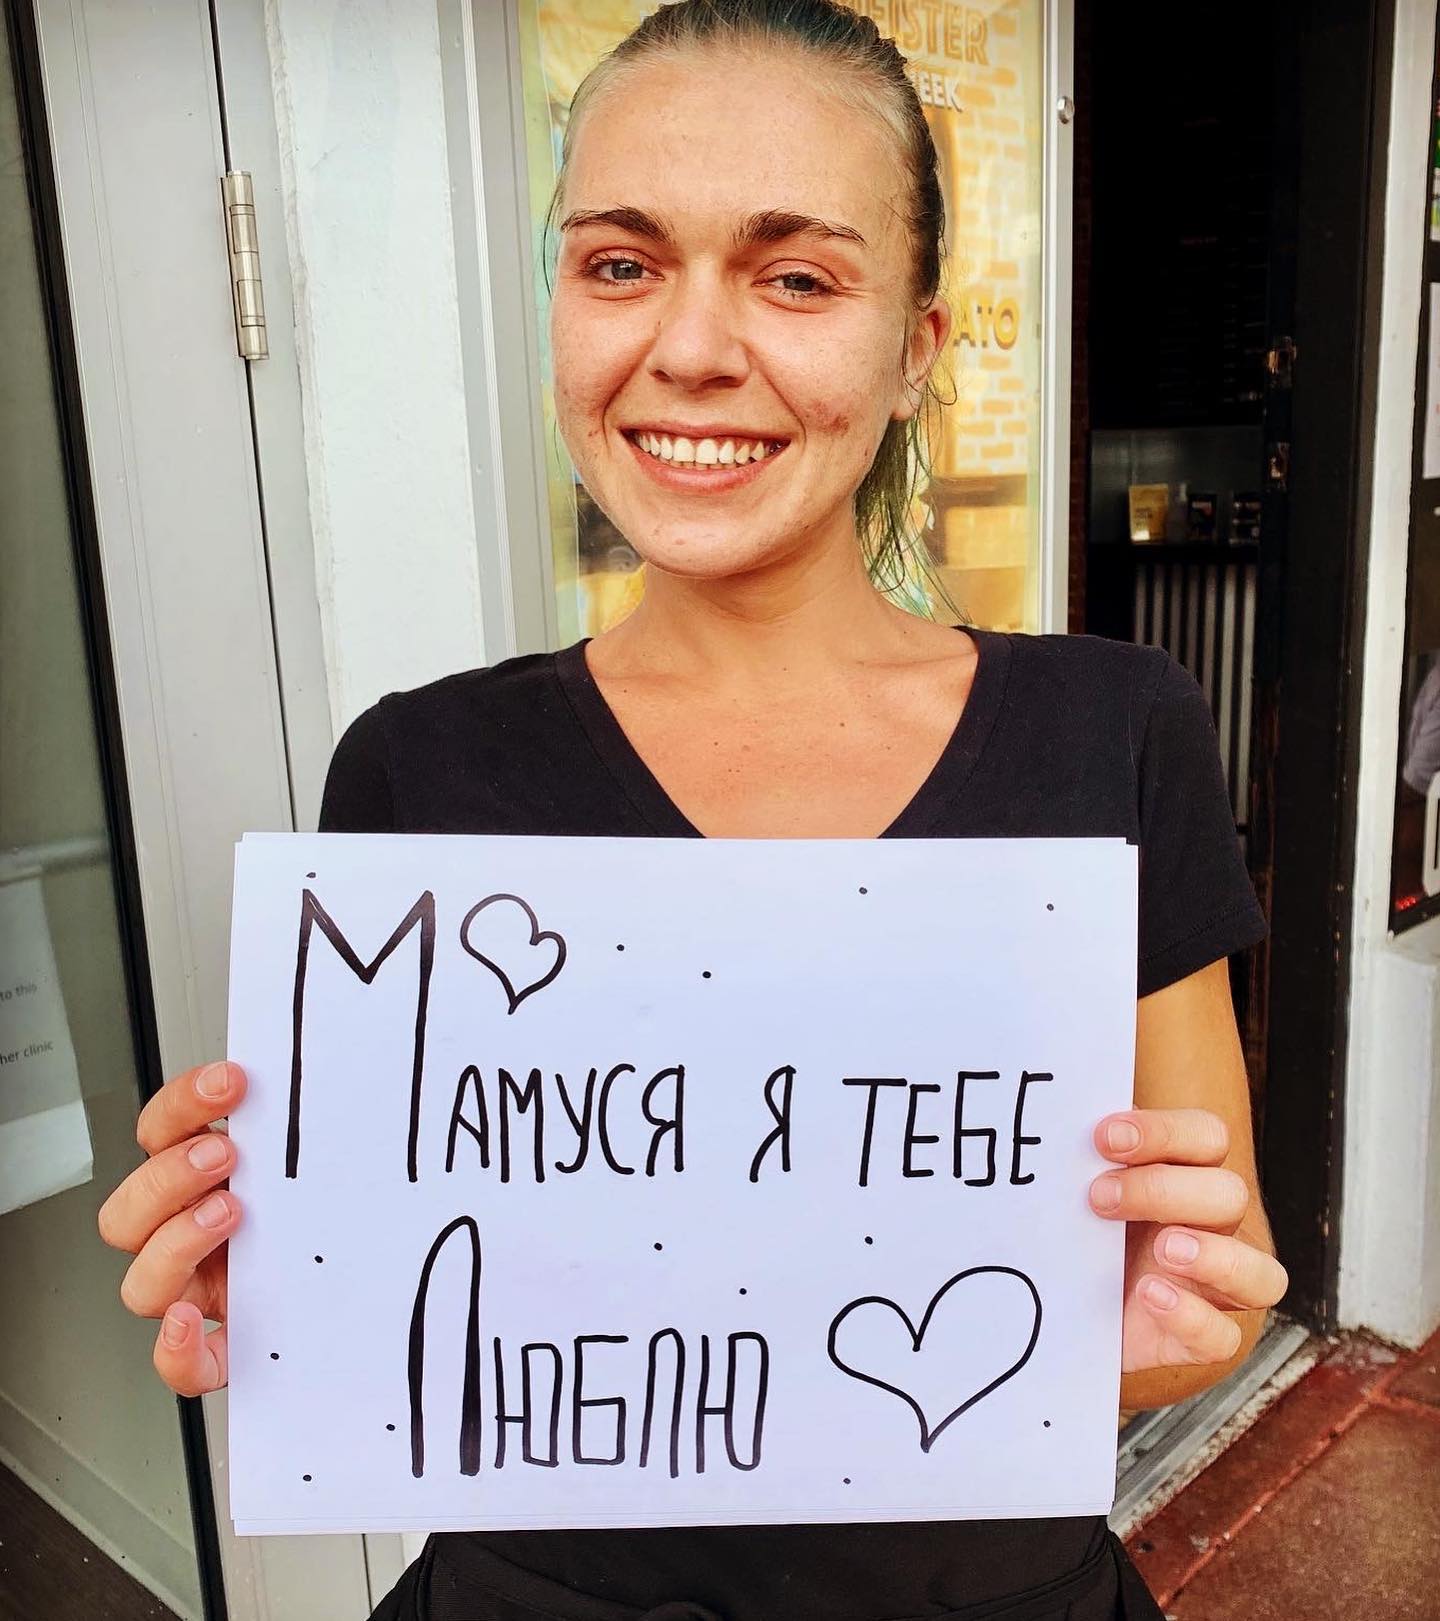 EISTER
EEK
ATO
to this
her clinic
Мамуся я тебе
Люблю